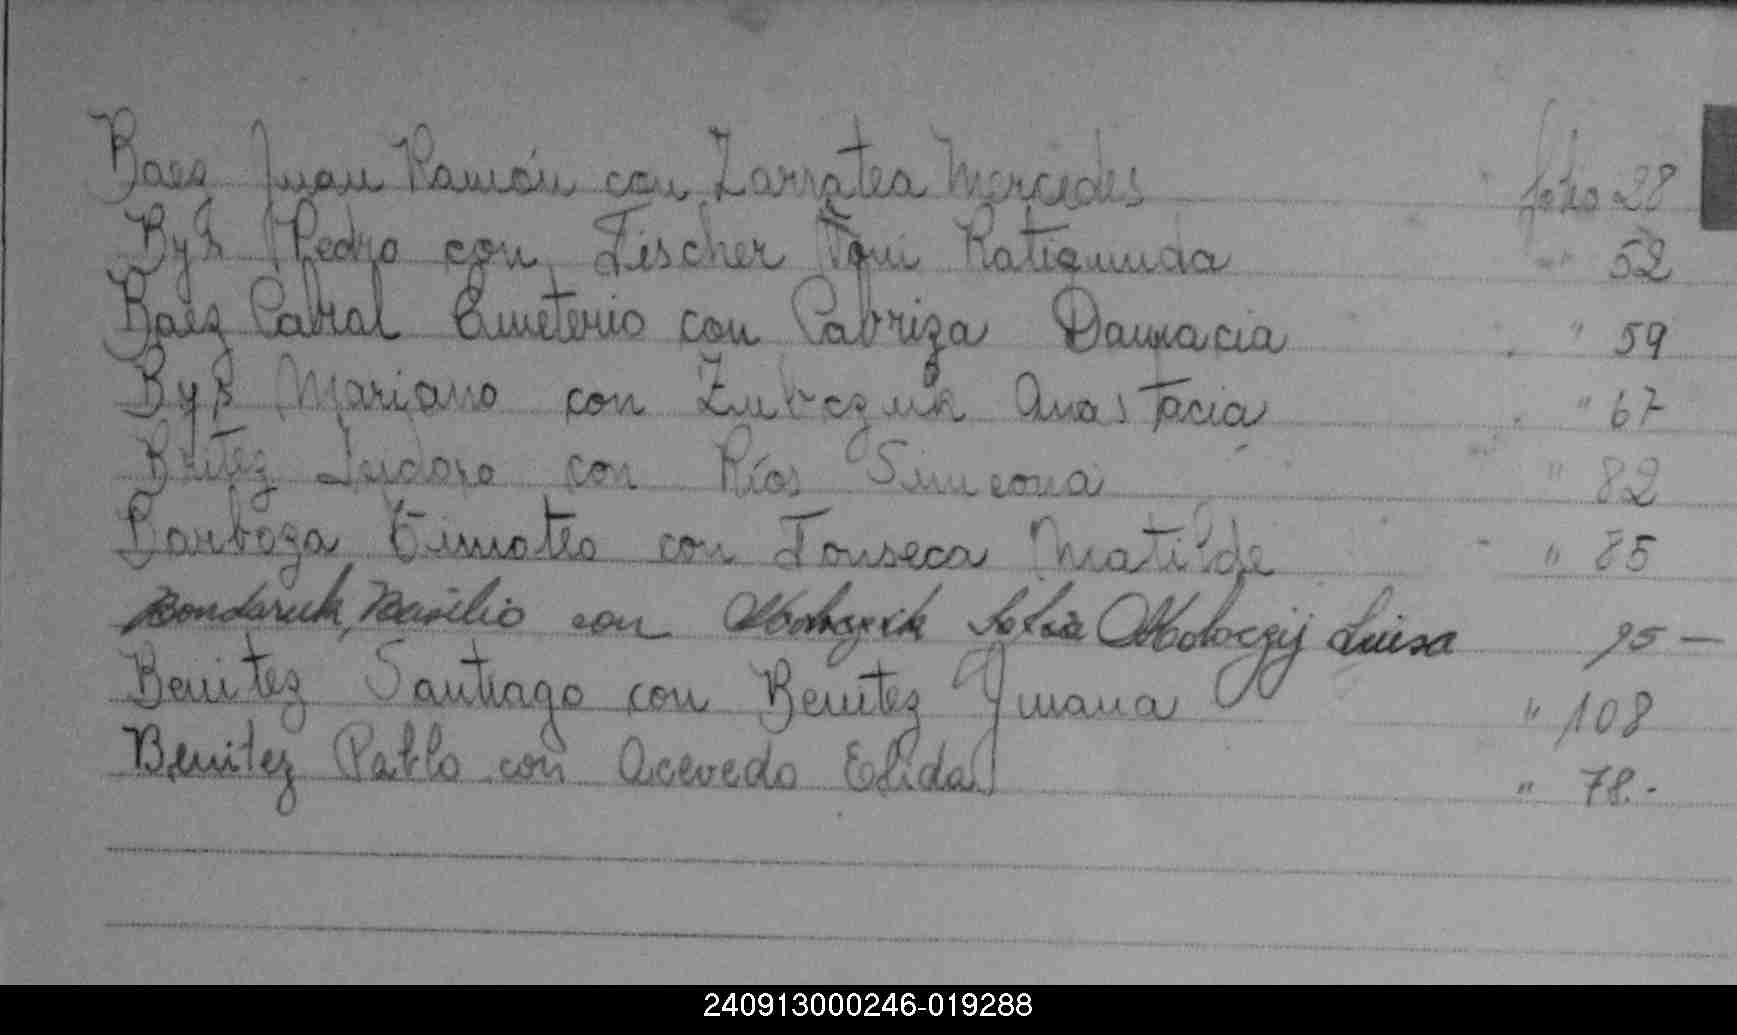 Baez Juan Ramón con Zarratea Mercedes folio 28
Pedro con Fischer " 52
Baez Cabral Emeterio con Cabriza Damacia " 59
Mariano con Anastacia " 67
Britez Isidoro con Ríos Simeona " 82
Barboza Timoteo con Fonseca Matilde " 85
Bondaruk, Basilio con Luisa 95 —
Benitez Santiago con Benitez Juana " 108
Benitez Pablo con Acevedo Elida " 78.-
240913000246-019288